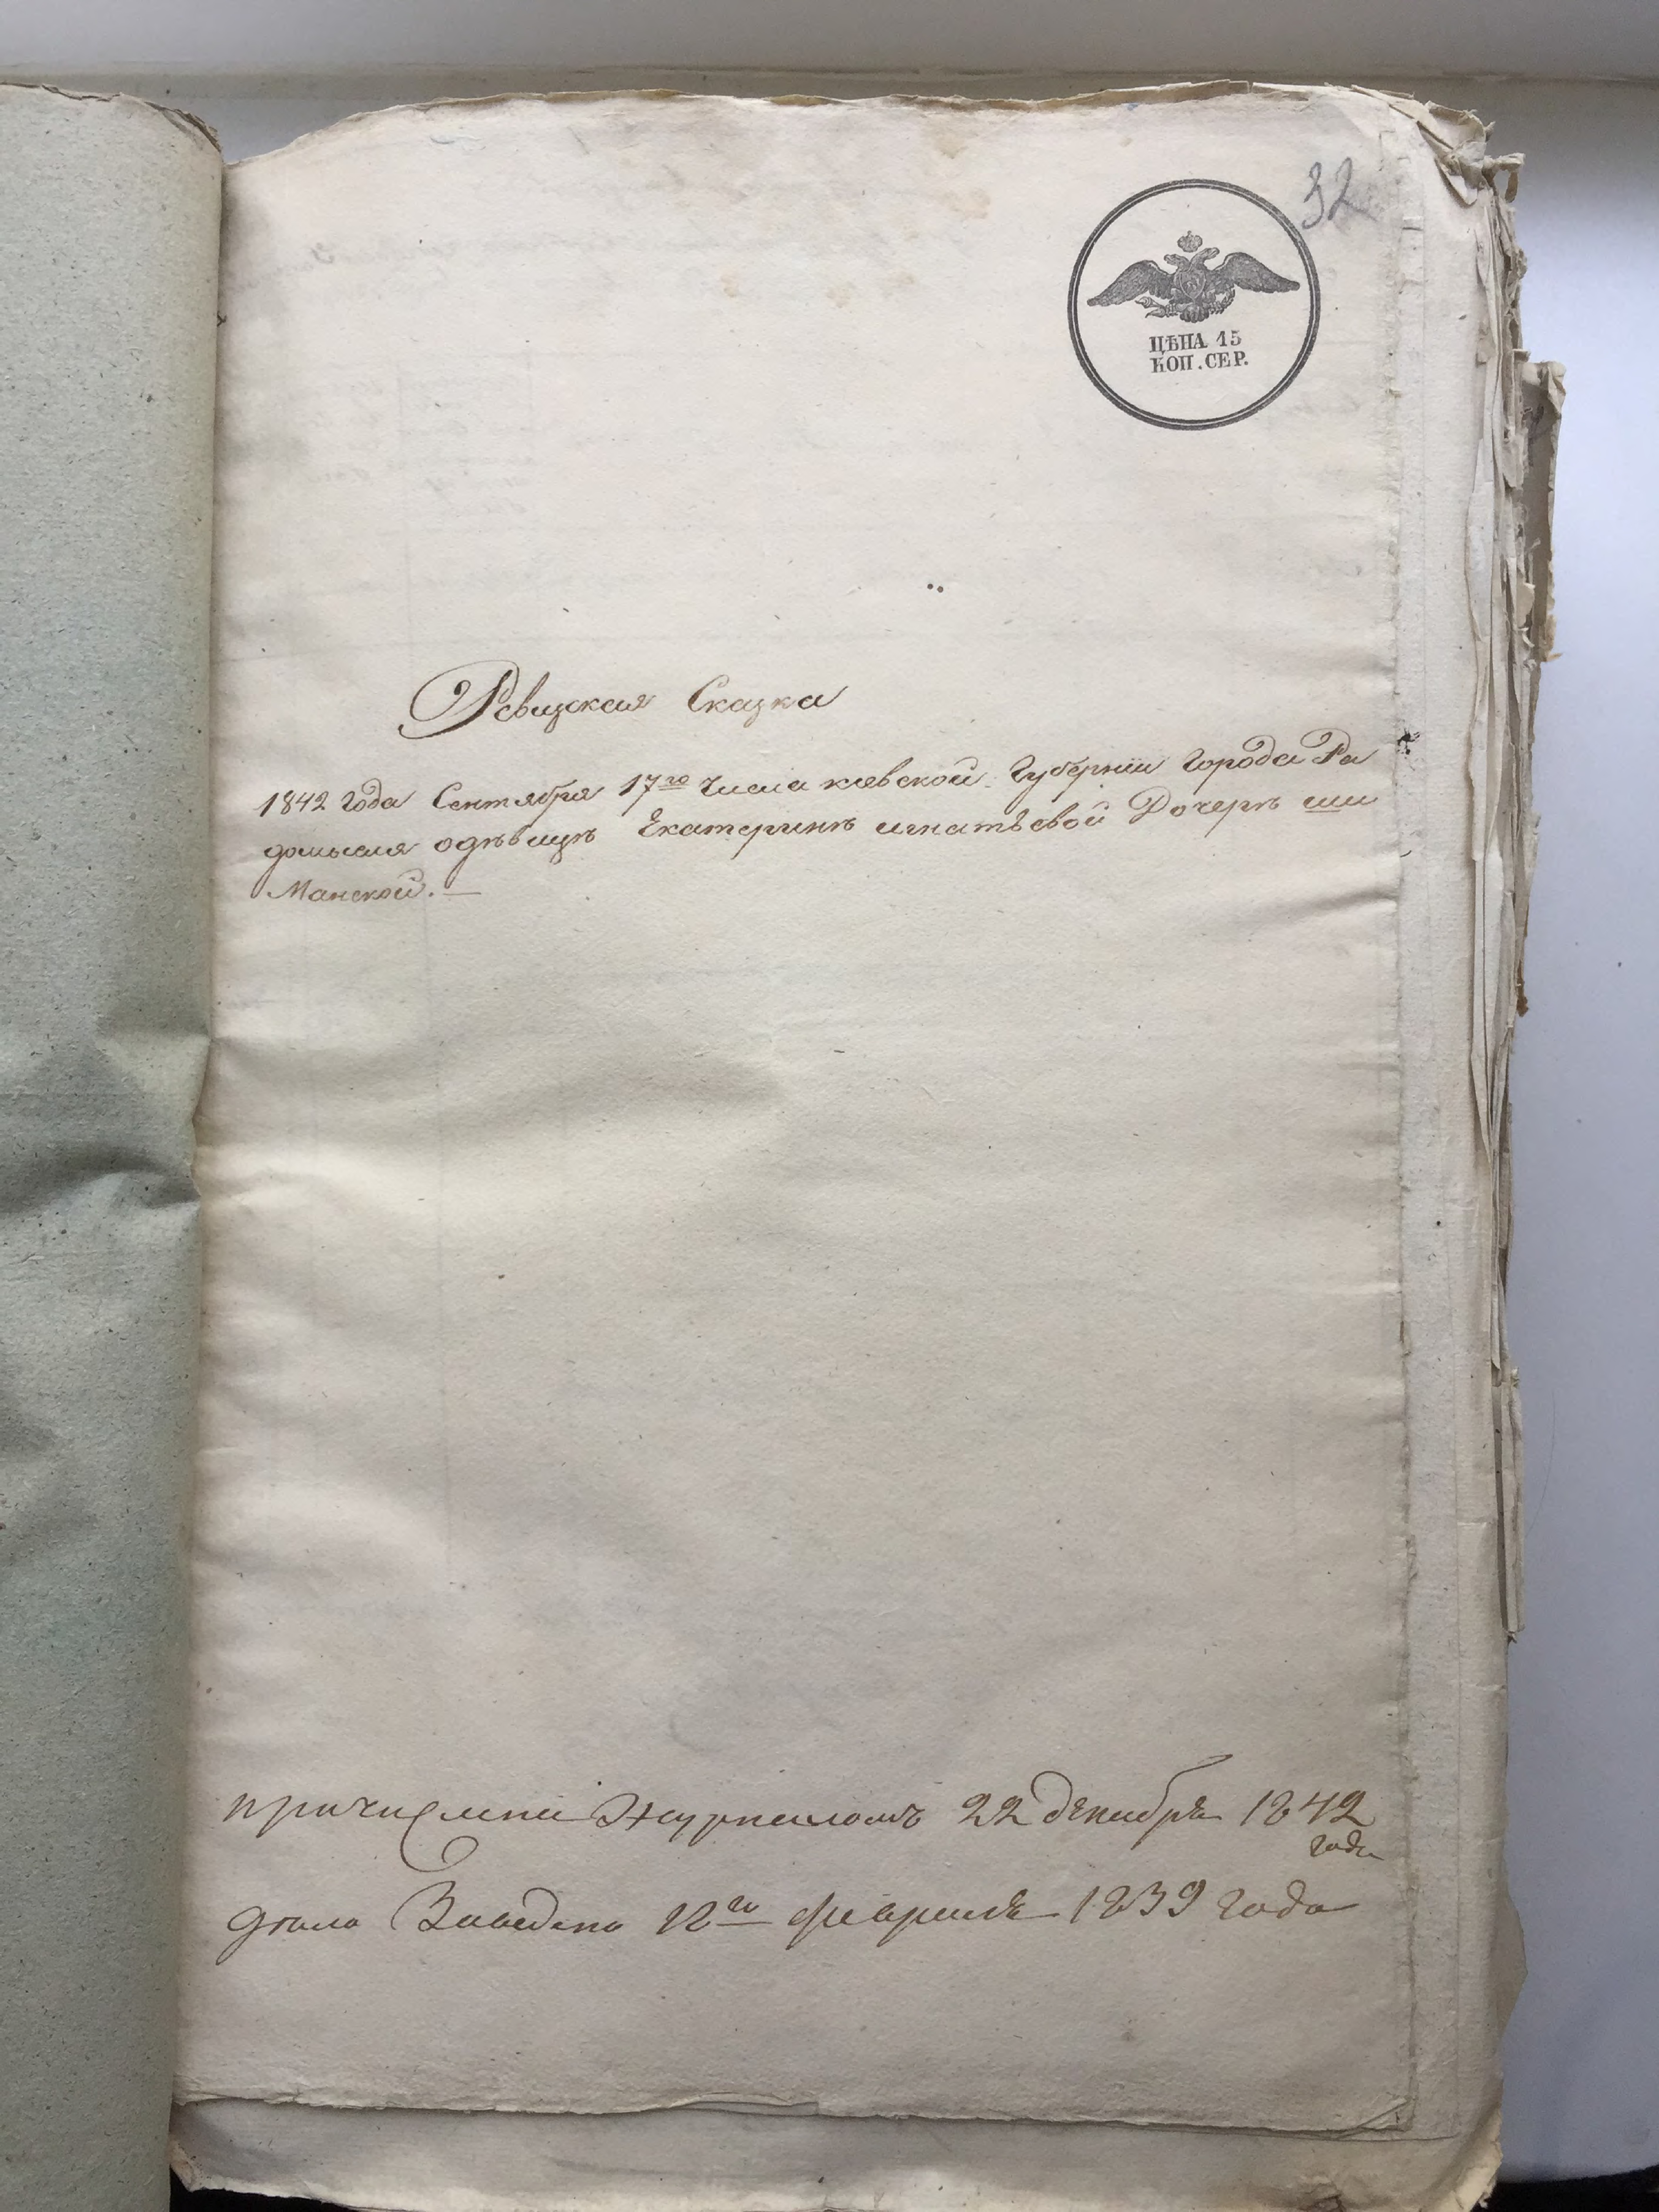 32
ЦѢНА 15
КОП. СЕР.
Ревизская Сказка
1842 года Сентября 17го числа киевской Губернии города Ра
домысля одѣвицѣ Екатеринѣ игнатьевой Дочерѣ ши
Манской. —
причислена Журналомъ 22 декабря 1842
года
дѣло Заведено 12го февраля 1839 года